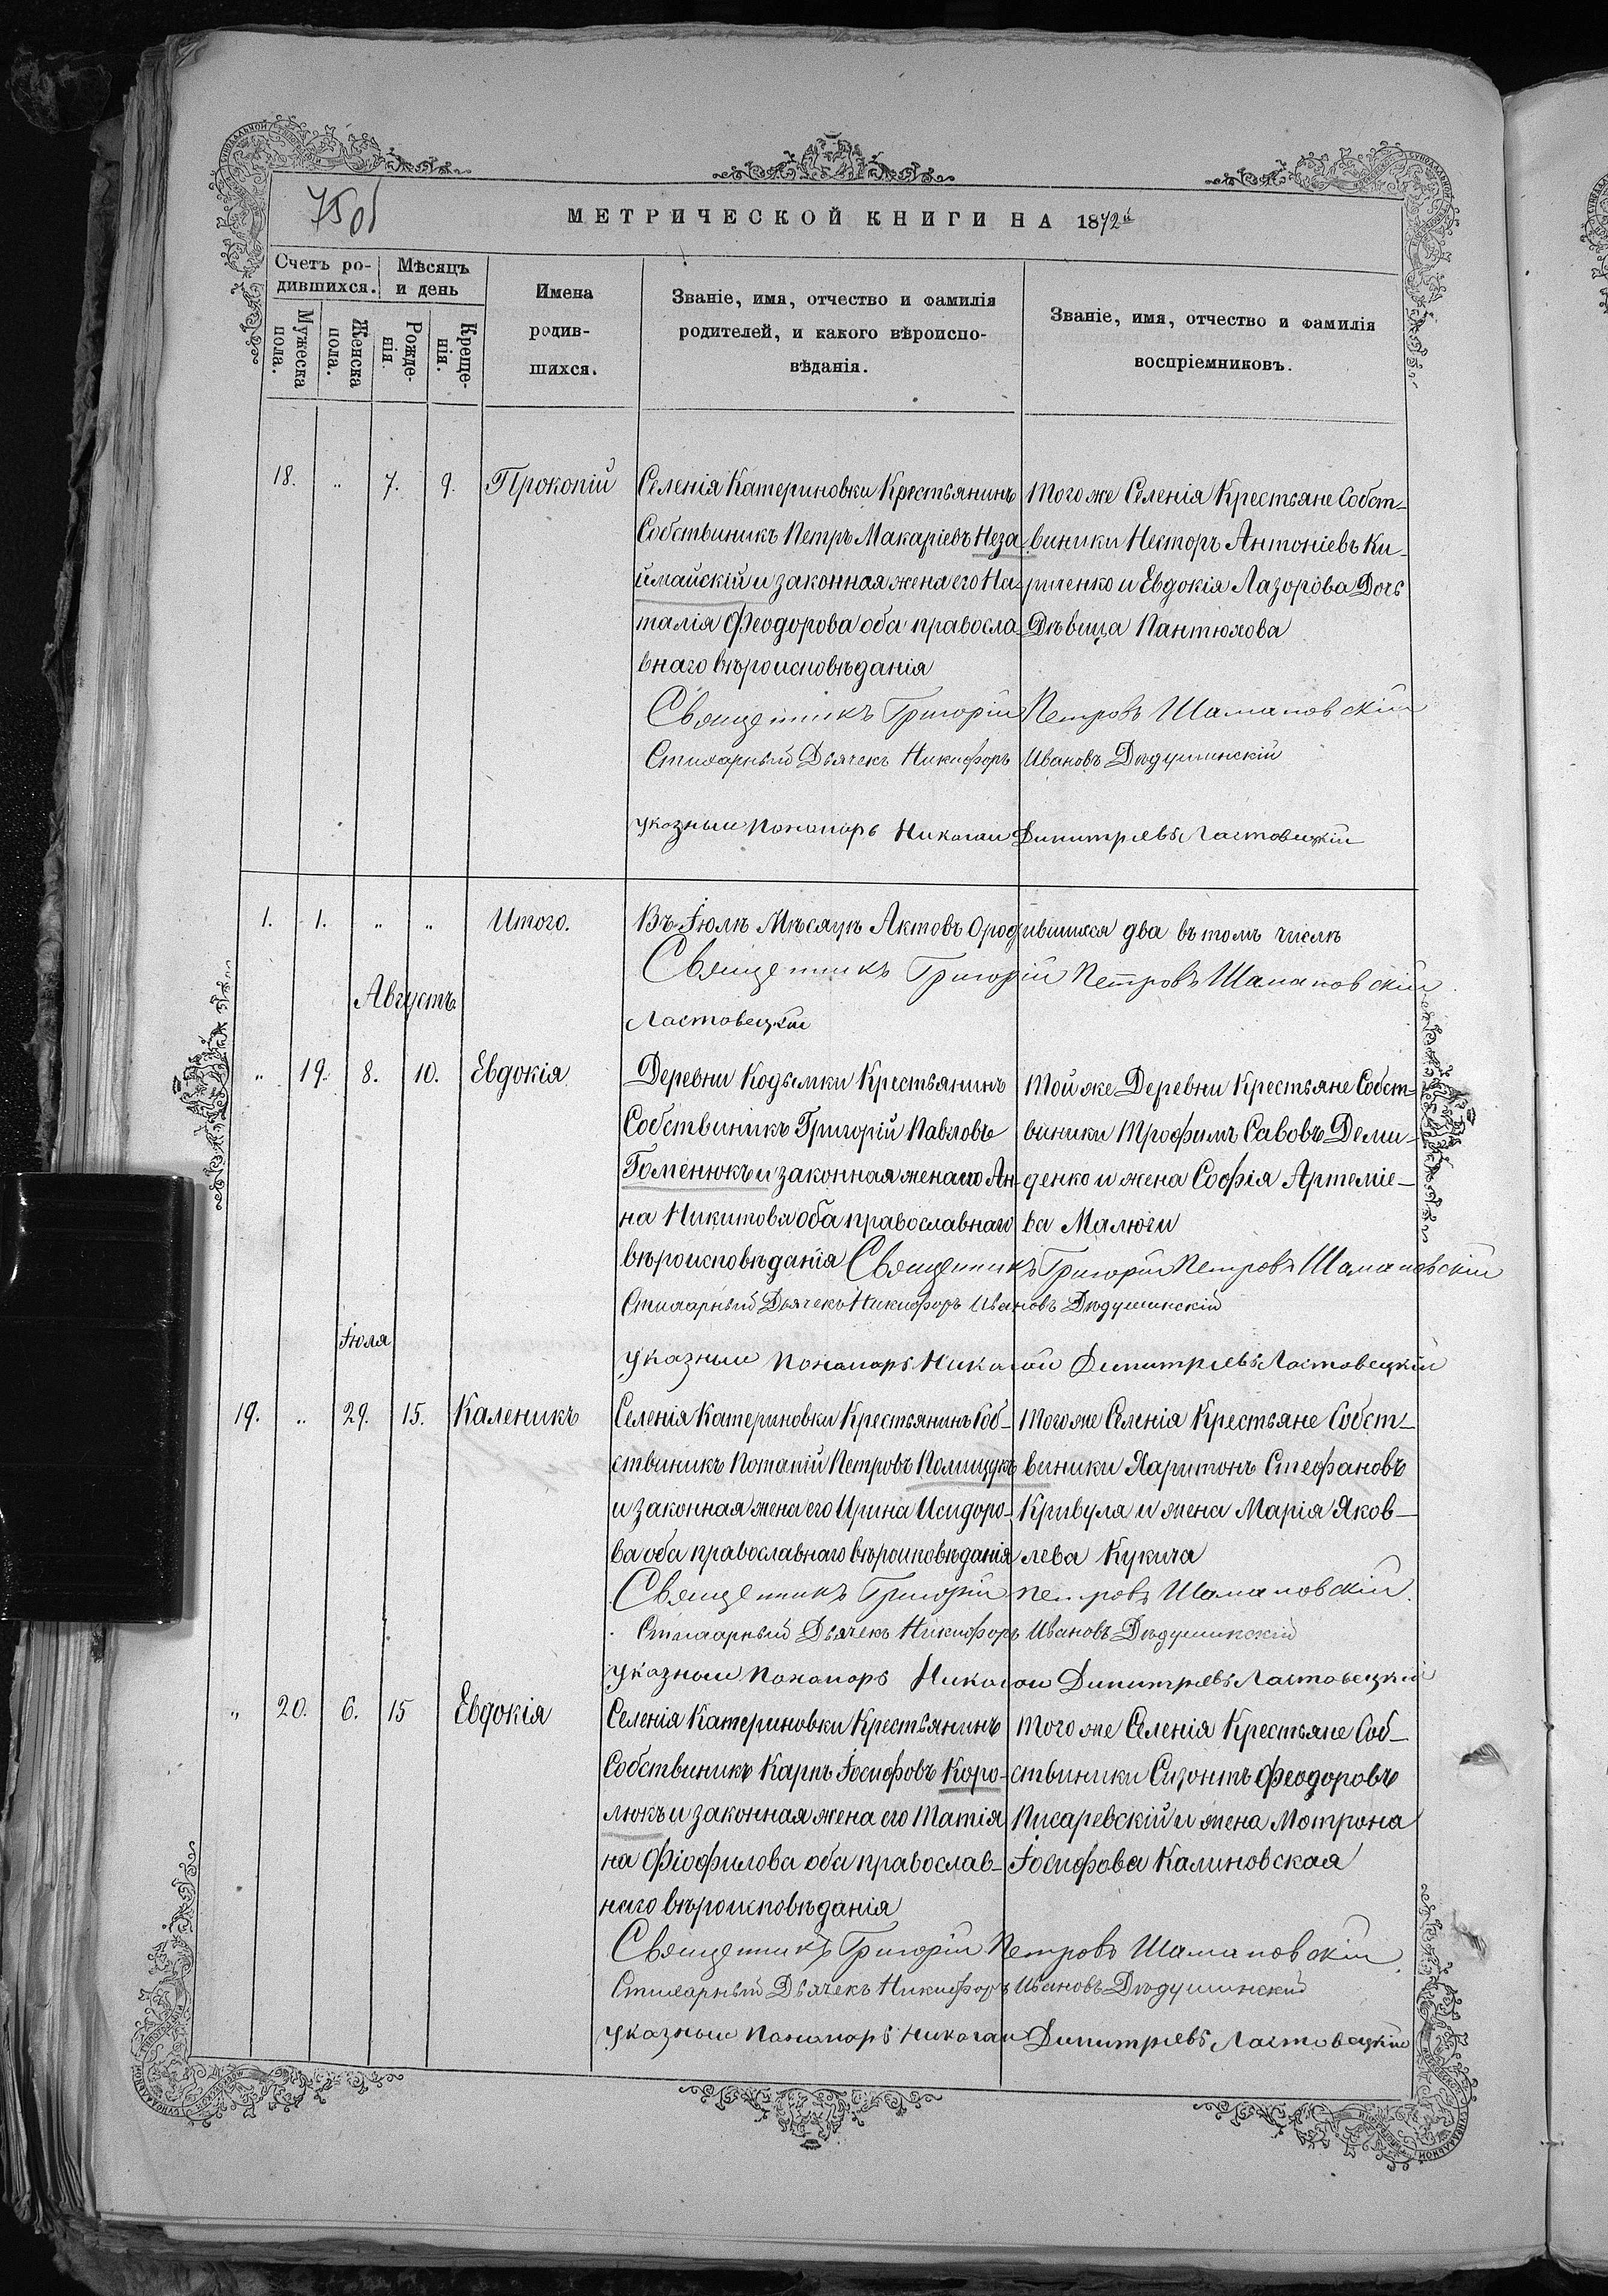 75об
МЕТРИЧЕСКОЙ КНИГИ НА 1872й
Счетъ ро-
дившихся.
Мѣсяцъ
и день
Мужеска пола.
Женска пола.
Рожде-
нія.
Креще-
нія.
Имена
родив-
шихся.
Званіе, имя, отчество и фамилія
родителей, и какого вѣроиспо-
вѣданія.
Званіе, имя, отчество и фамилія
воспріемниковъ.
18. „ 7. 9. Прокопій
Селенія Катериновки Крестьянинъ
Собствиникъ Петръ Макаріевъ Неза-
ймайскій и законная жена его На-
талія Феодорова оба правосла-
внаго вѣроисповѣданія
Того же Селенія Крестьяне Собст-
виники Несторъ Антоніевъ Ки-
риченко и Евдокія Лазорова Дочь
Дѣвица Пантюхова
Священникъ Григорій Петровъ Шамановскій
Стихарный Дьячекъ Никифоръ Ивановъ Дѣдушинскій
указный пономарь Николай Димитріевъ Ластовецкій
1. 1. „ „ Итого.
Въ Іюлѣ Мѣсяцѣ Актовъ О родившихся два въ томъ числѣ
Священникъ Григорій Петровъ Шамановскій
Ластовецкій
Августъ
„ 19. 8. 10. Евдокія
Деревни Кодымки Крестьянинъ
Собствиникъ Григорій Павловъ
Гоменюкъ и законная жена его Ан-
на Никитова оба православнаго
вѣроисповѣданія
Той же Деревни Крестьяне Собст-
виники Трофимъ Савовъ Деми-
денко и жена Софія Артеміе-
ва Малюги
Священникъ Григорій Петровъ Шамановскій
Стихарный Дьячекъ Никифоръ Ивановъ Дѣдушинскій
указный пономарь Николай Димитріевъ Ластовецкій
Іюля
19. „ 29. 15. Каленикъ
Селенія Катериновки Крестьянинъ Соб-
ствиникъ Потапій Петровъ Полищукъ
и законная жена его Ирина Исидоро-
ва оба православнаго вѣроисповѣданія
Того же Селенія Крестьяне Собст-
виники Харитонъ Стефановъ
Кривуля и жена Марія Яков-
лева Кукича
Священникъ Григорій Петровъ Шамановскій.
Стихарный Дьячекъ Никифоръ Ивановъ Дѣдушинскій
указный пономарь Николай Димитріевъ Ластовецкій
„ 20. 6. 15 Евдокія
Селенія Катериновки Крестьянинъ
Собствиникъ Карпъ Іосифовъ Коро-
люкъ и законная жена его Татія
на Фіофилова оба православ-
наго вѣроисповѣданія
Того же Селенія Крестьяне Соб-
ствиники Сизонтъ Феодоровъ
Писаревскій и жена Мотрона
Іосифова Калиновская
Священникъ Григорій Петровъ Шамановскій
Стихарный Дьячекъ Никифоръ Ивановъ Дѣдушинскій
указный пономарь Николай Димитріевъ Ластовецкій